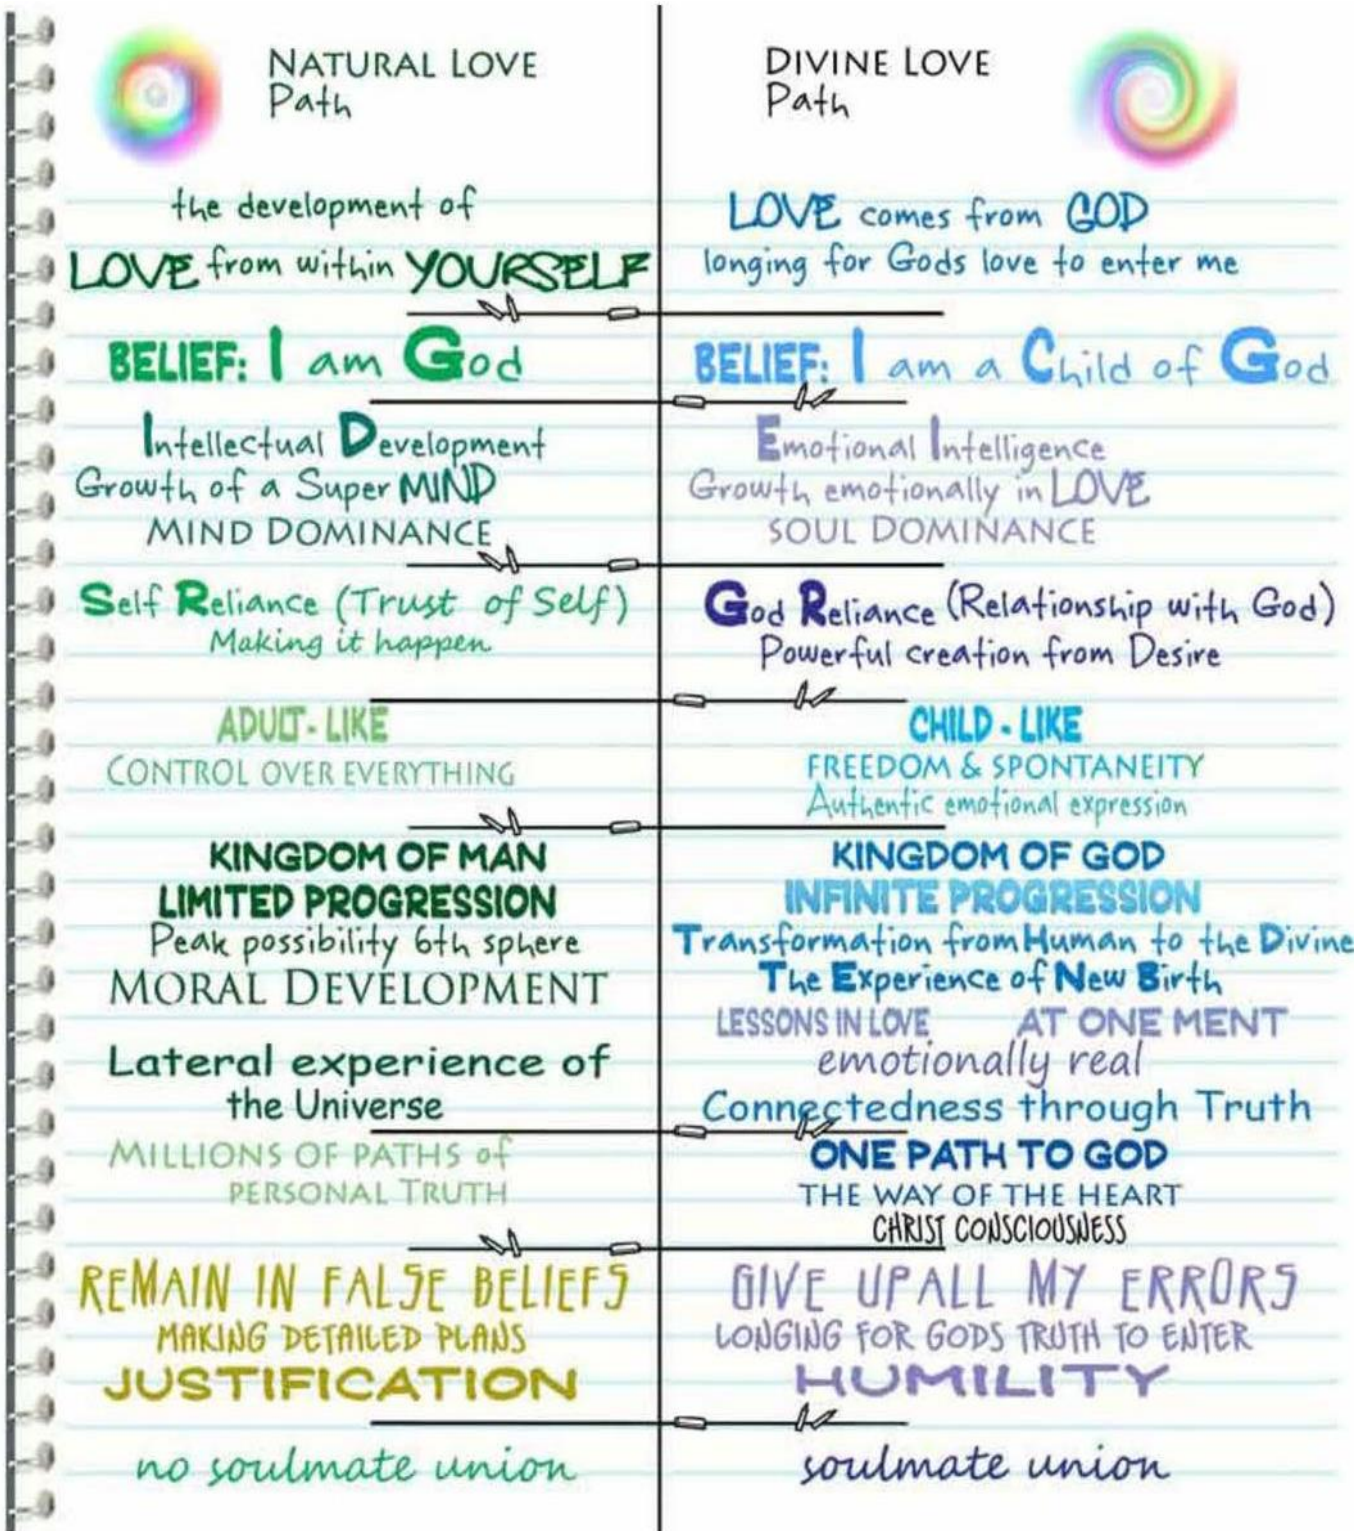 NATURAL LOVE
Path
the development of
LOVE from within YOURSELF
BELIEF: I am God
Intellectual Development
Growth of a Super MIND
MIND DOMINANCE
Self Reliance (Trust of Self)
Making it happen
ADULT - LIKE
CONTROL OVER EVERYTHING
KINGDOM OF MAN
LIMITED PROGRESSION
Peak possibility 6th sphere
MORAL DEVELOPMENT
Lateral experience of
the Universe
MILLIONS OF PATHS of
PERSONAL TRUTH
REMAIN IN FALSE BELIEFS
MAKING DETAILED PLANS
JUSTIFICATION
no soulmate union
DIVINE LOVE
Path
LOVE comes from GOD
longing for Gods love to enter me
BELIEF: I am a Child of God
Emotional Intelligence
Growth emotionally in LOVE
SOUL DOMINANCE
God Reliance (Relationship with God)
Powerful creation from Desire
CHILD - LIKE
FREEDOM & SPONTANEITY
Authentic emotional expression
KINGDOM OF GOD
INFINITE PROGRESSION
Transformation from Human to the Divine
The Experience of New Birth
LESSONS IN LOVE AT ONE MENT
emotionally real
Connectedness through Truth
ONE PATH TO GOD
THE WAY OF THE HEART
CHRIST CONSCIOUSNESS
GIVE UP ALL MY ERRORS
LONGING FOR GODS TRUTH TO ENTER
HUMILITY
soulmate union